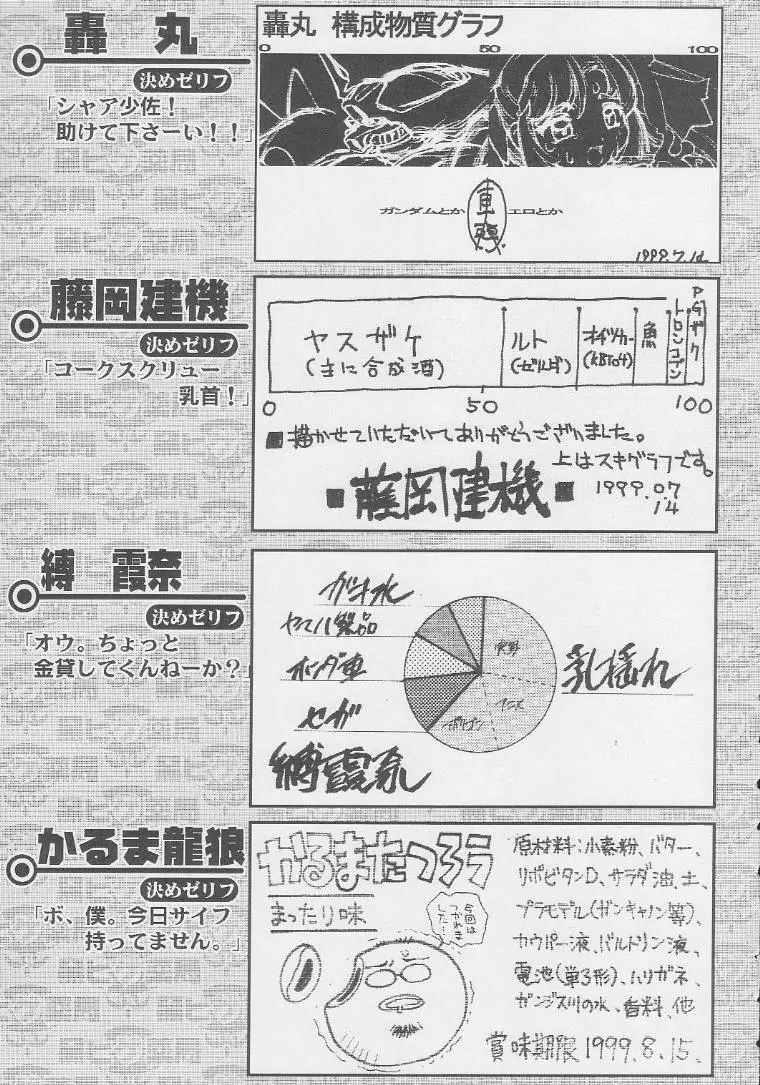 轟丸
決めゼリフ
「シャア少佐！
助けて下さーい！！」
轟丸 構成物質グラフ
0 50 100
ガンダムとか
エロとか
藤岡建機
決めゼリフ
「コークスクリュー
乳首！」
ヤスザケ
(主に合成酒)
ルト
魚
0 50 100
■描かせていただいてありがとうございました。
上はスキグラフです。
■藤岡建機■
1999.07
14
縛 霞奈
決めゼリフ
「オウ。ちょっと
金貸してくんねーか？」
ガナ水
ヤマハ製品
ホンダ車
セガ
実写
アニメ
ポリゴン
乳揺れ
縛霞奈
かるま龍狼
決めゼリフ
「ボ、僕。今日サイフ
持ってません。」
かるまたつろう
まったり味
今回は
つかれま
した…
原材料：小麦粉、バター、
リポビタンD、サラダ油、土、
プラモデル(ガンキャノン等)、
カウパー液、バルトリン液、
電池(単3形)、ハリガネ、
ガンジス川の水、香料、他
賞味期限1999.8.15.